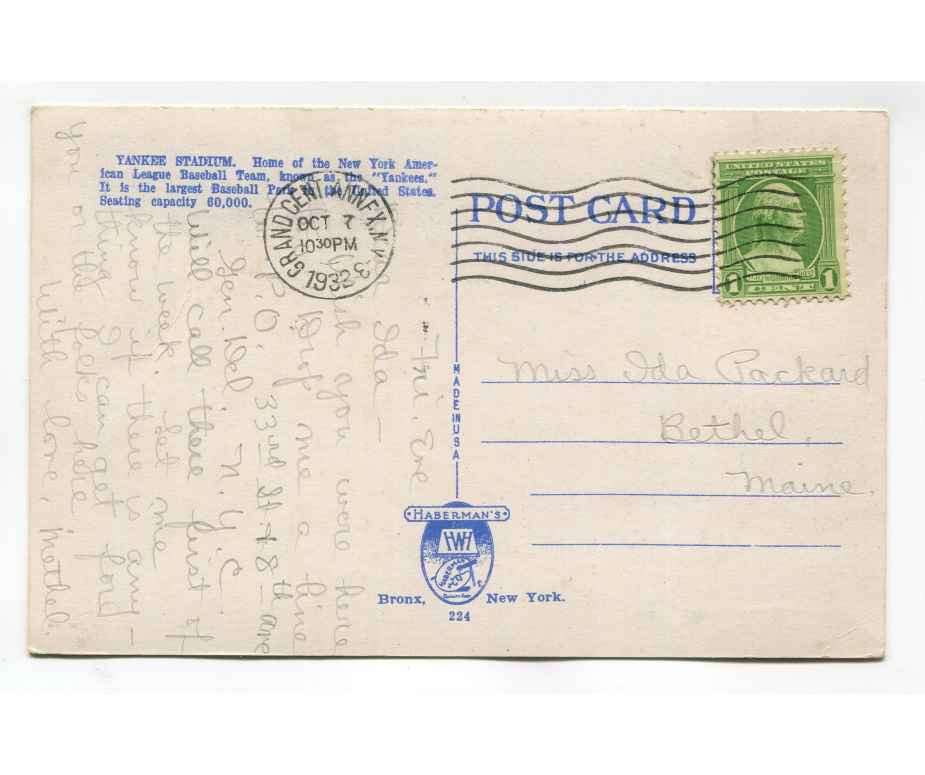 YANKEE STADIUM. Home of the New York Amer-
ican League Baseball Team, known as the "Yankees."
It is the largest Baseball Park in the United States.
Seating capacity 60,000.
GRAND CENT. ANNEX. N.Y.
OCT 7
10 30 PM
1932
POST CARD
THIS SIDE IS FOR THE ADDRESS
UNITED STATES
POSTAGE
1 1
MADE IN USA
Fri. Eve
Ida —
you were here
Drop me a line
P.O. 33rd St + 8th Ave
Gen. Del. N.Y.C.
Will call there first of
the week. Let me
know if there is any-
thing I can get for
you or the folks here
With love, Methel.
Miss Ida Packard
Bethel,
Maine.
HABERMAN'S
HWH
Bronx, New York.
224